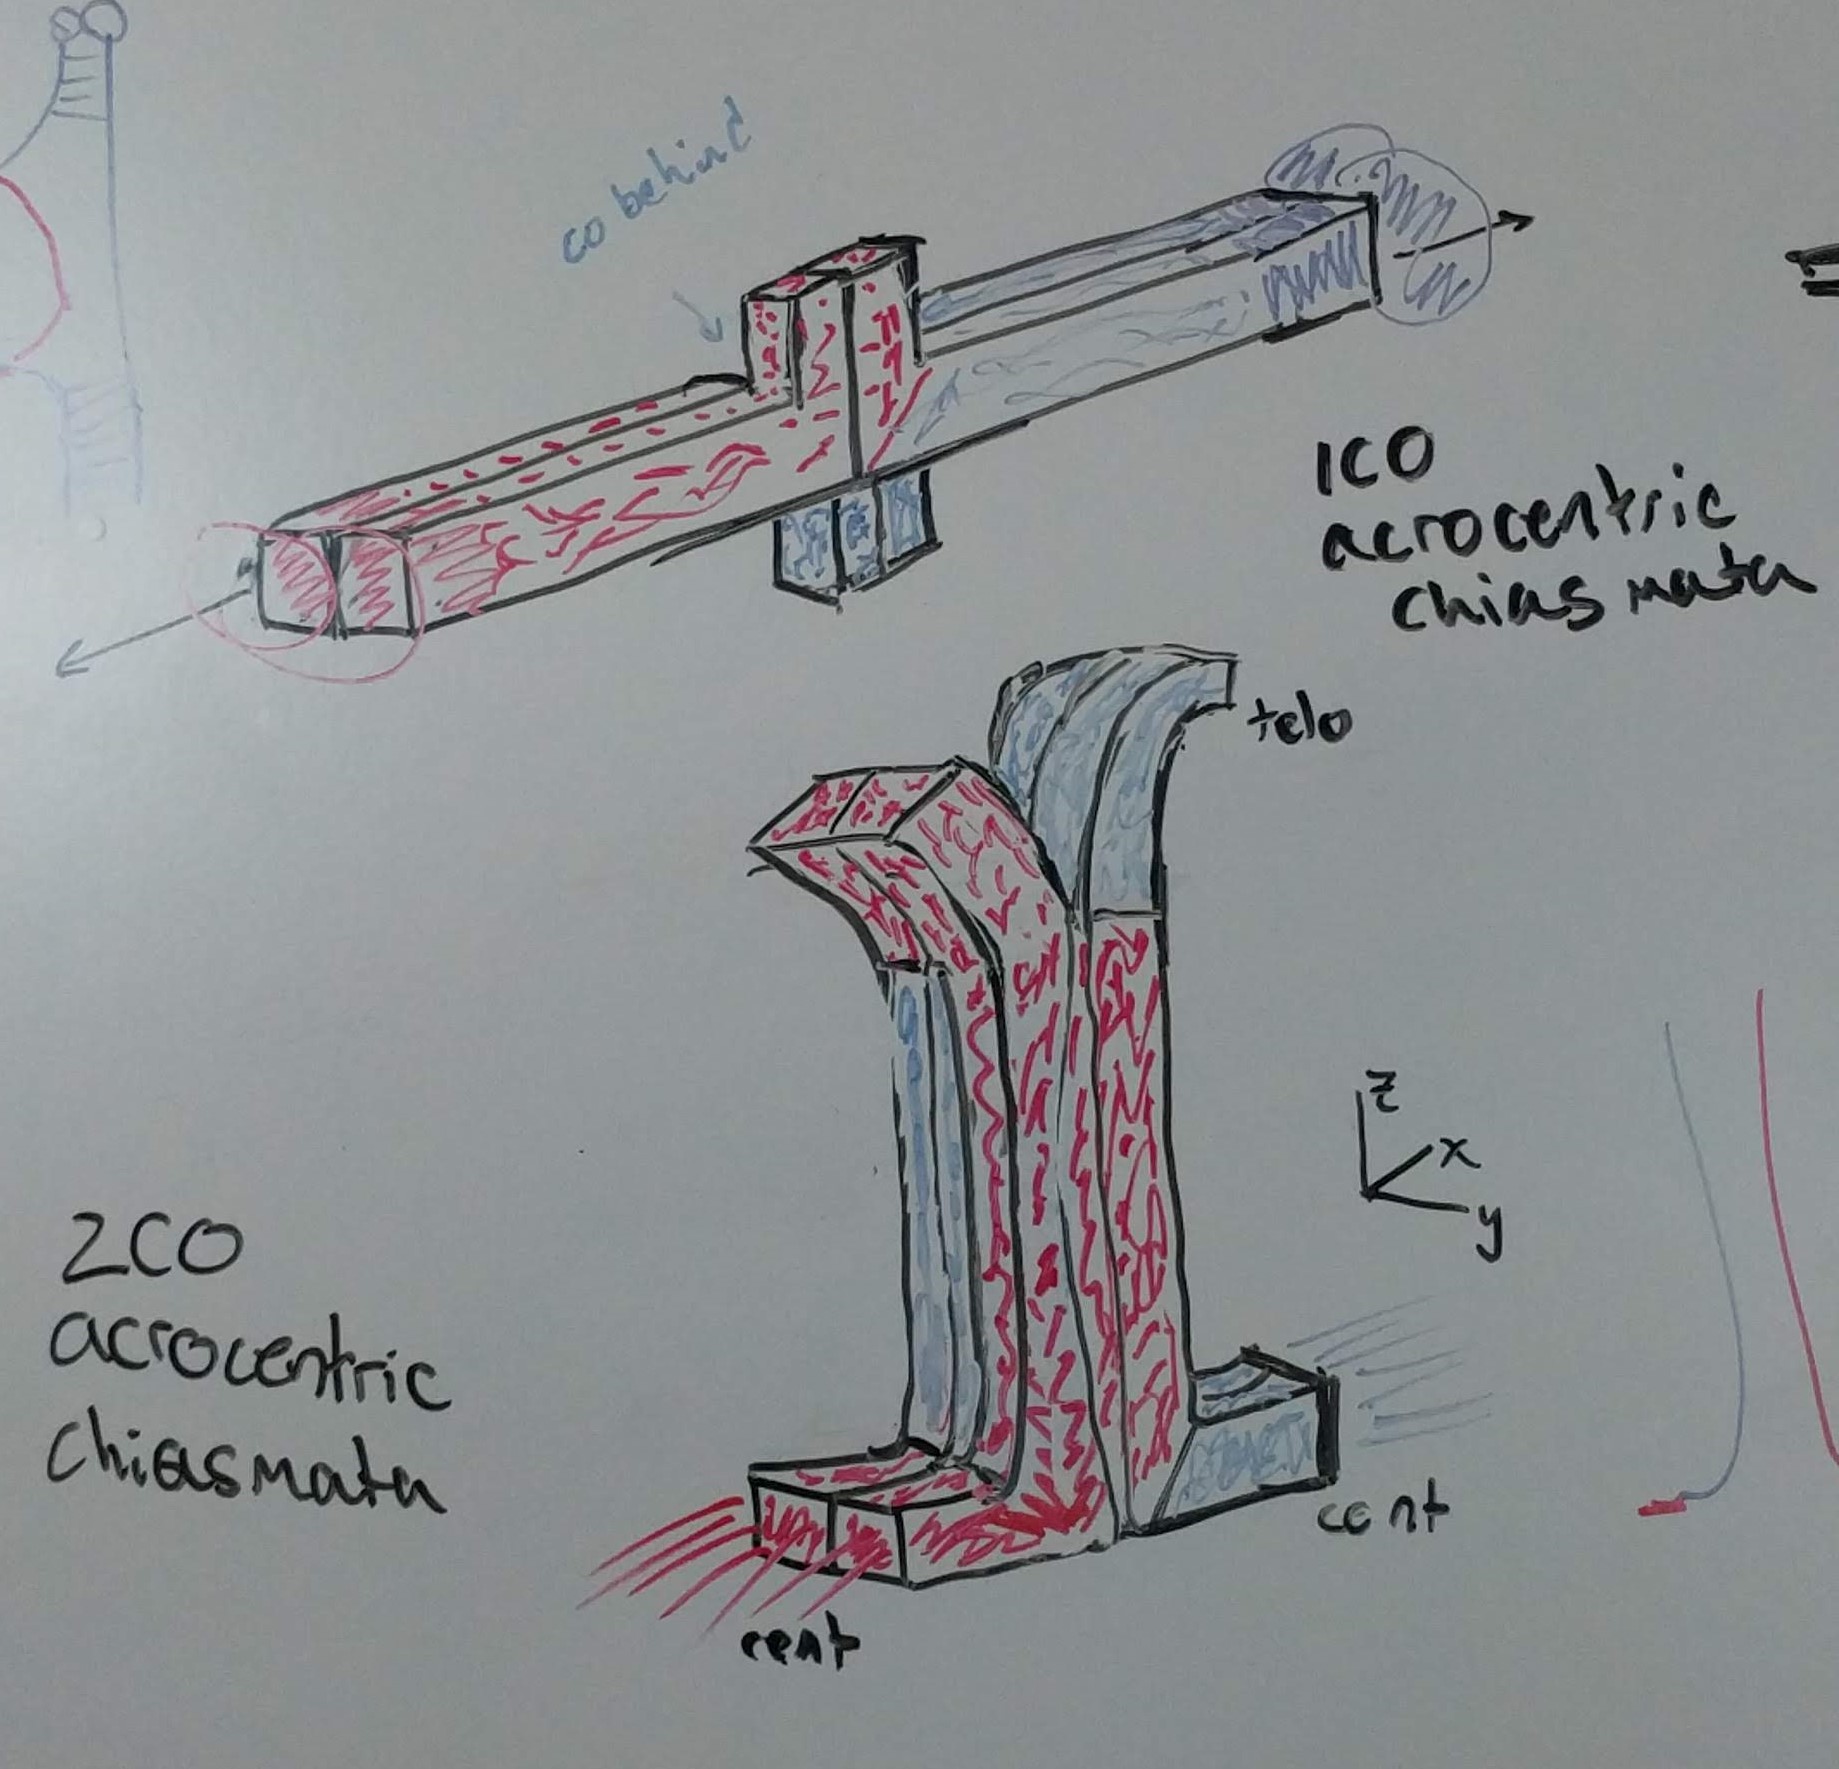 co behind
1CO
acrocentric
chiasmata
telo
z
x
y
2CO
acrocentric
chiasmata
cent
cent